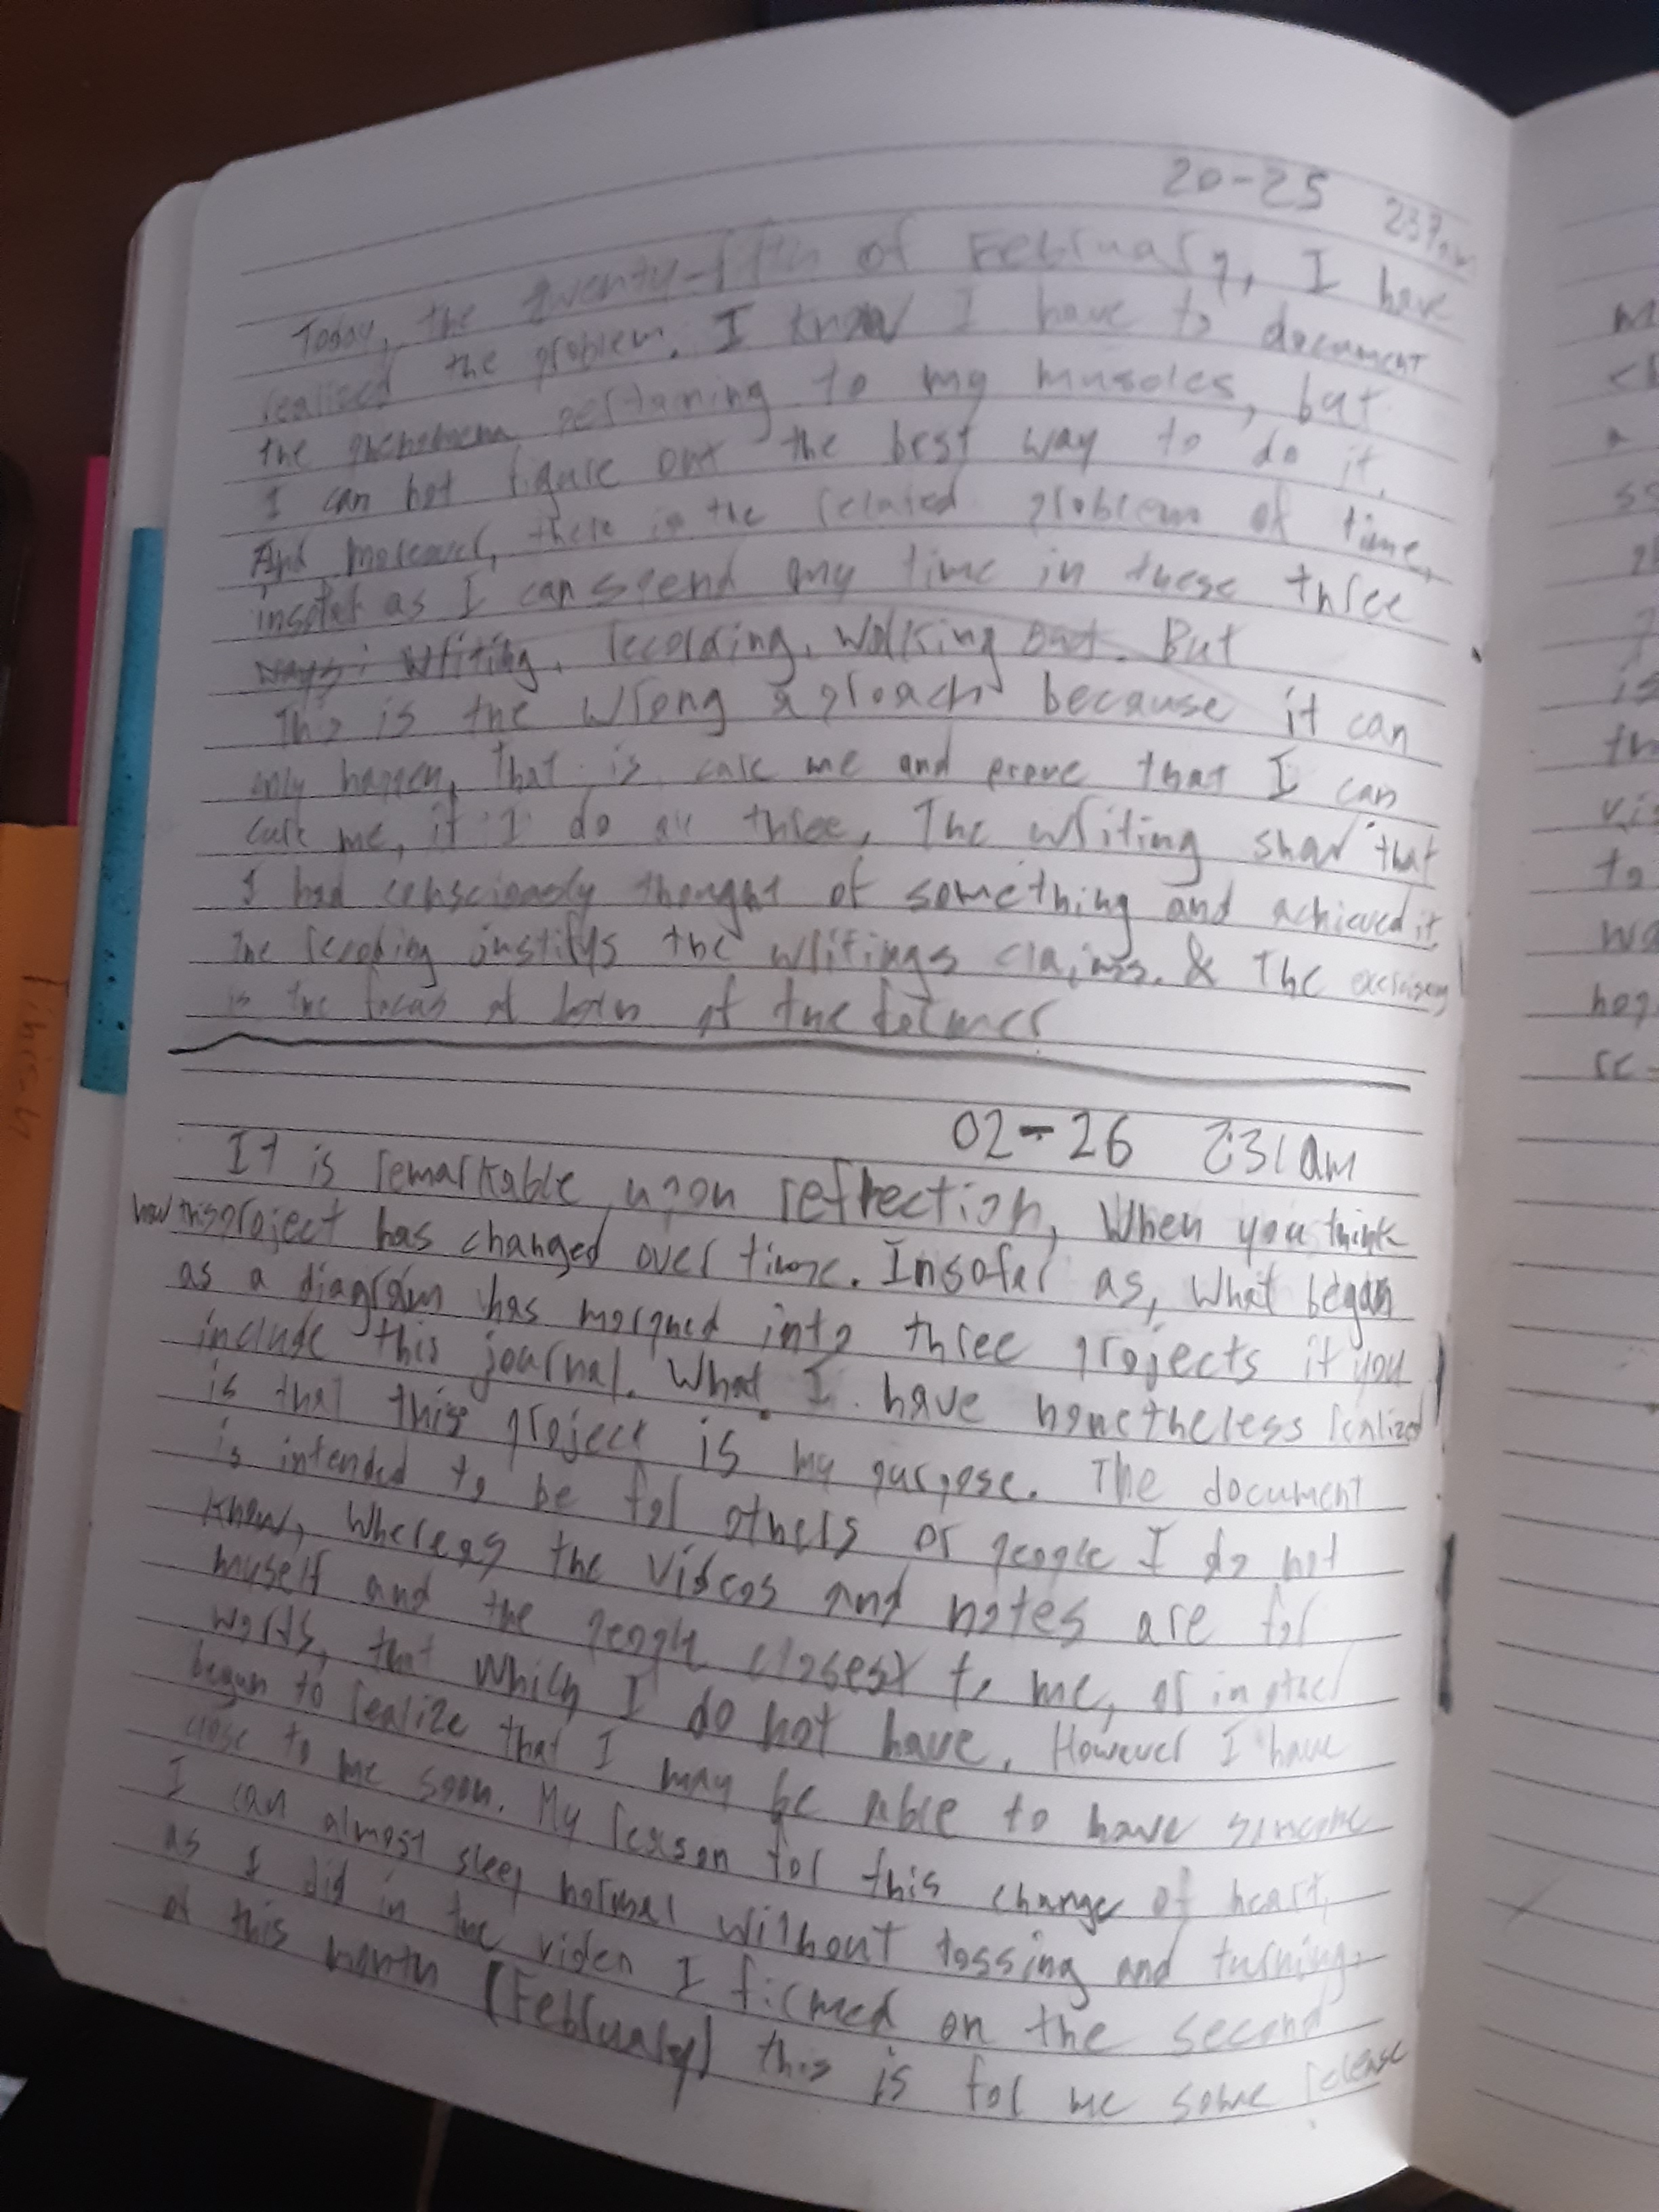 20-25 237am
Today, the twenty-fifth of February, I have
realized the problem. I know I have to document
the phenomena pertaining to my musoles, but
I can not figure out the best way to do it.
And moreover, there is the related problem of time,
insofar as I can spend my time in these three
ways: writing, recording, walking out. But
This is the wrong approach because it can
only happen, that is cure me and prove that I can
cure me, if I do all three, The writing show that
I had consciously thought of something and achieved it
The recording justifys the writings claims. & The excrisiseng
is the focus of both of the former
02-26 2:31am
It is remarkable upon reflection, When you think
how this project has changed over time. Insofar as, what began
as a diagram has morphed into three projects if you
include this journal. What I have nonetheless realized
is that this project is my purpose. The document
is intended to be for others or people I do not
know, whereas the videos and notes are for
myself and the people closest to me, or in other
words, that which I do not have. However I have
begun to realize that I may be able to have someone
close to me soon. My reason for this change of heart,
I can almost sleep normal without tossing and turning.
as I did in the video I filmed on the second
of this month (February) this is for me some release
m
a
ss
is
th
vi
to
wa